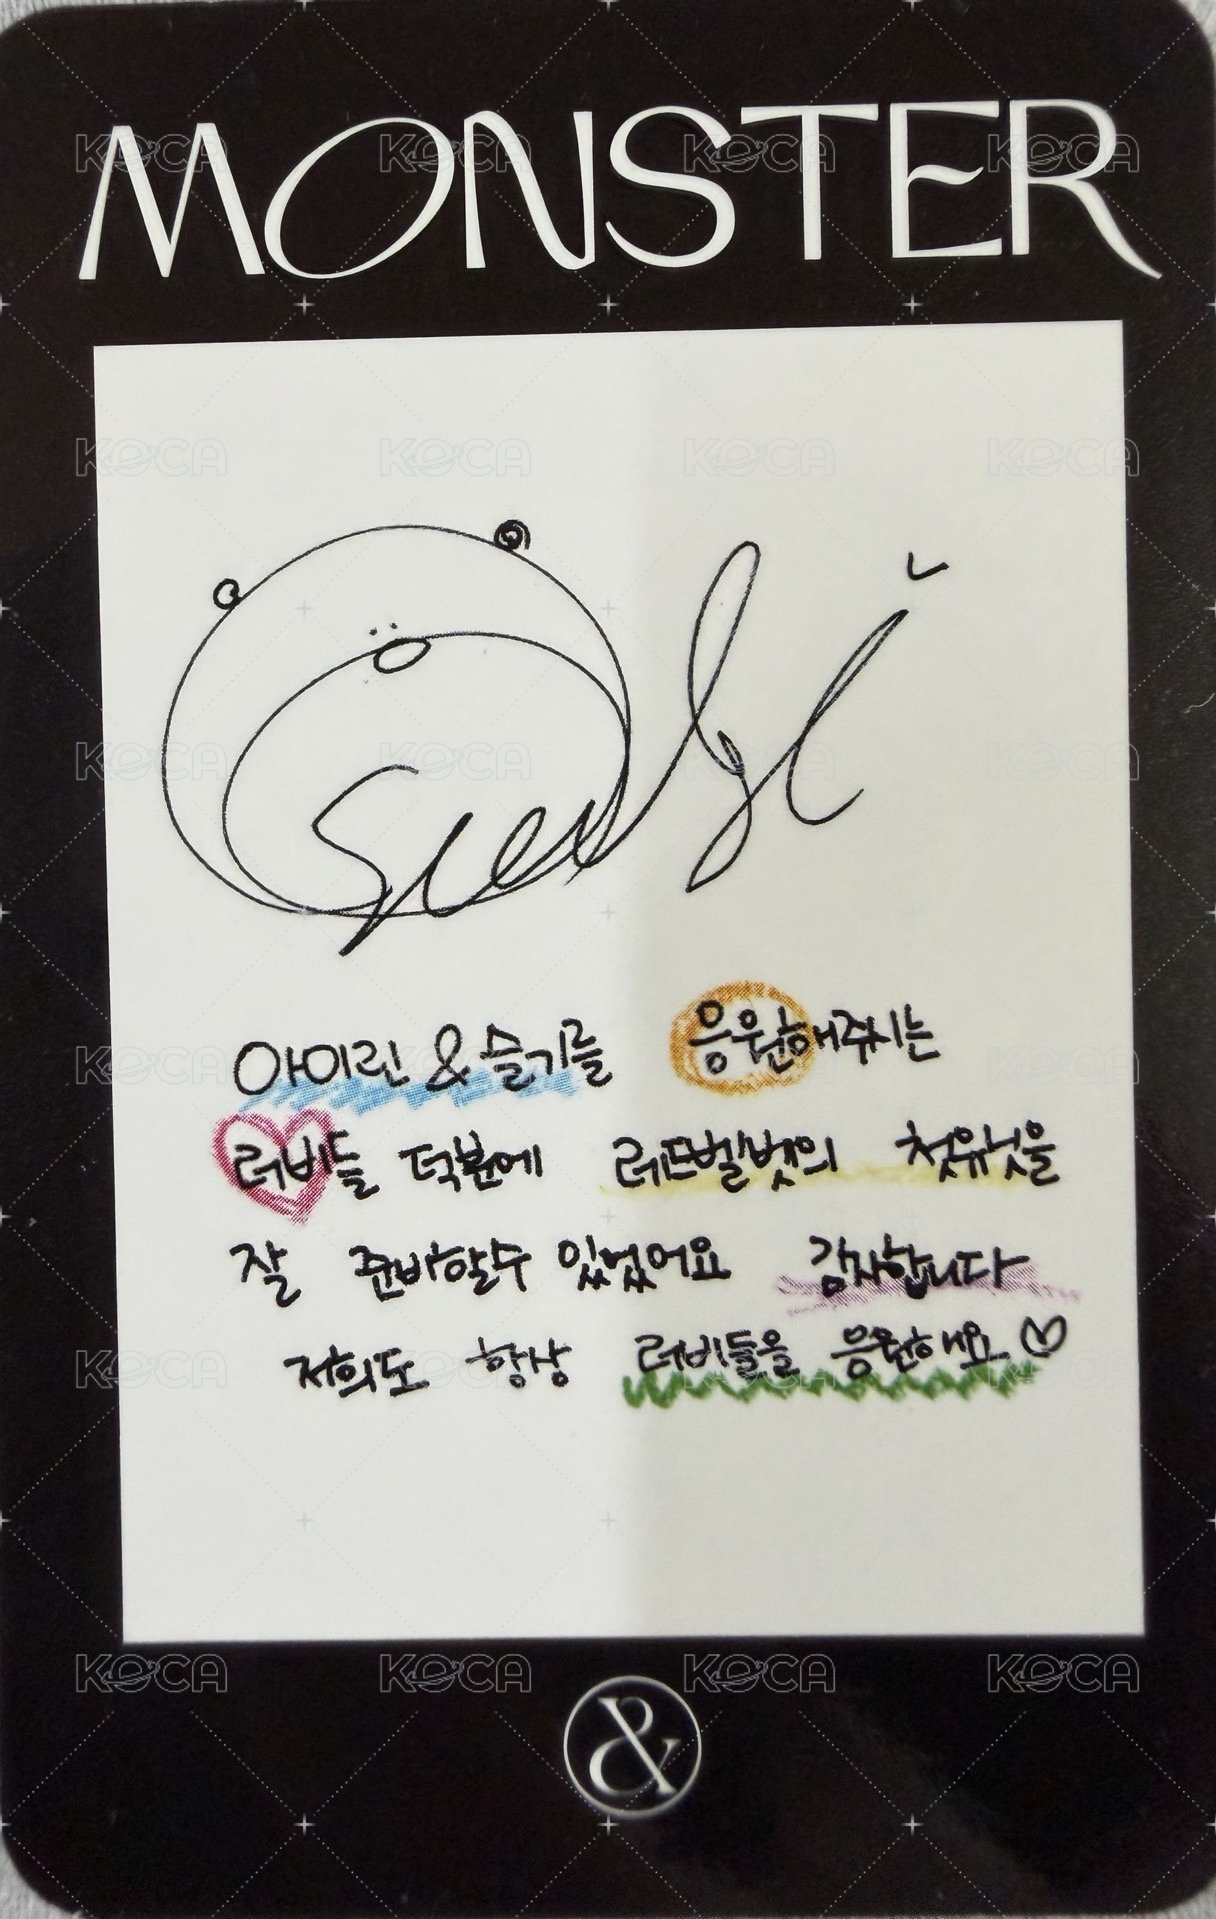 MONSTER
Seulgi
아이린 & 슬기를 응원해주시는
러비들 덕분에 레드벨벳의 첫유닛을
잘 준비할수 있었어요 감사합니다
저희도 항상 러비들을 응원해요♡
&
KOCA